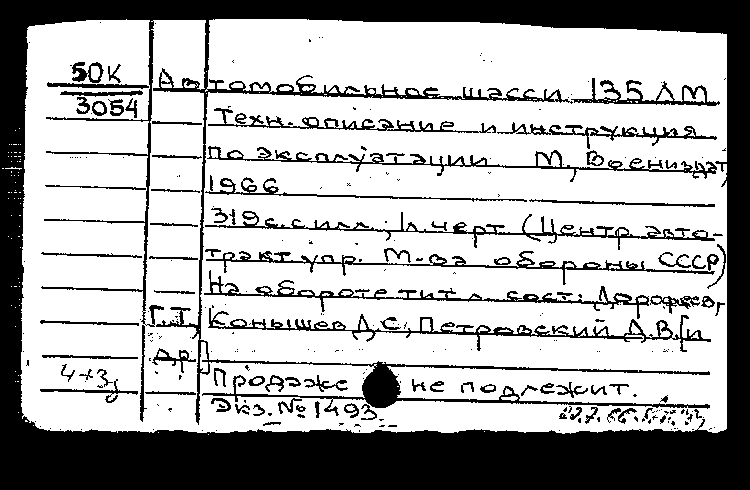 50К
3054
Автомобильное шасси 135 ЛМ
Техн. описание и инструкция
по эксплуатации М., Воениздат,
1966.
319 с. с илл.; 1 л. черт (Центр. авто-
тракт упр. М-ва обороны СССР)
На обороте тит л. сост: Дорофеев,
Г.Т., Конышев Д.С., Петровский Д.В. [и
др]
4+3д
Продаже не подлежит.
Экз. № 1493.